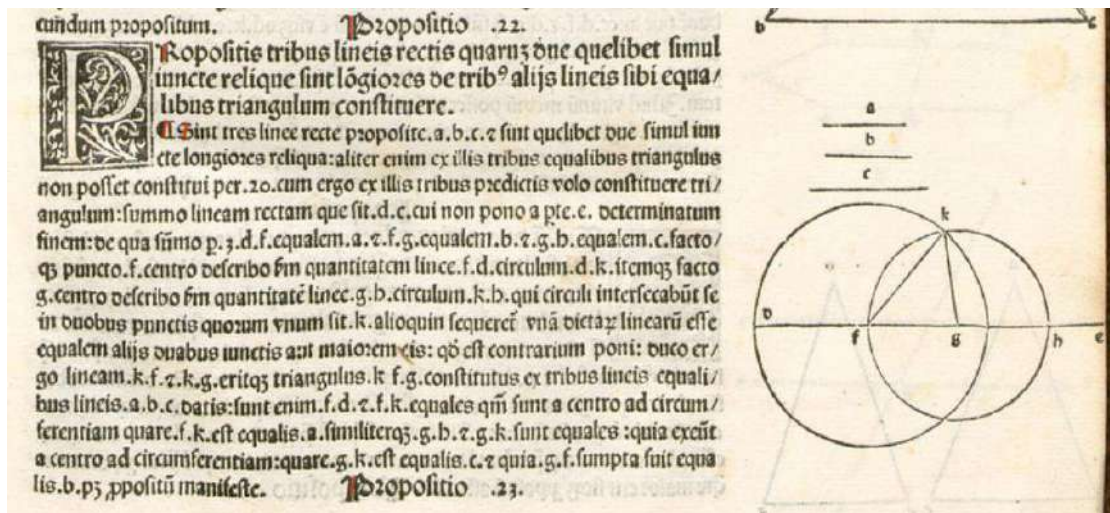 cundum propositum. Propositio .22.
PRopositis tribus lineis rectis quaruʒ due quelibet simul
iuncte relique sint lõgiores de tribꝰ alijs lineis sibi equa/
libus triangulum constituere.
¶ Sint tres linee recte proposite.a.b.c.⁊ sint quelibet due simul iun
cte longiores reliqua:aliter enim ex illis tribus equalibus triangulus
non posset constitui per.20.cum ergo ex illis tribus predictis volo constituere tri/
angulum:summo lineam rectam que sit.d.e.cui non pono a ꝑte.e. determinatum
finem:de qua sũmo ꝑ.3.d.f.equalem.a.⁊.f.g.equalem.b.⁊.g.h.equalem.c.facto/
qʒ puncto.f.centro describo ẜm quantitatem linee.f.d.circulum.d.k.itemqʒ facto
g.centro describo ẜm quantitatẽ linee.g.h.circulum.k.h.qui circuli intersecabũt se
in duobus punctis quorum vnum sit.k.alioquin sequeret᷑ vnã dictaꝝ linearũ esse
equalem alijs duabus iunctis aut maiorem eis: qđ est contrarium poni: duco er/
go lineam.k.f.⁊.k.g.eritqʒ triangulus.k f.g.constitutus ex tribus lineis equali/
bus lineis.a.b.c.datis:sunt enim.f.d.⁊.f.k.equales qm̃ sunt a centro ad circum/
ferentiam quare.f.k.est equalis.a.similiterqʒ.g.h.⁊.g.k.sunt equales :quia exeũt
a centro ad circumferentiam:quare.g.k.est equalis.c.⁊ quia.g.f.sumpta fuit equa
lis.b.pʒ ꝓpositũ manifeste. Propositio .23.
b c
a
b
c
k
d f g h e